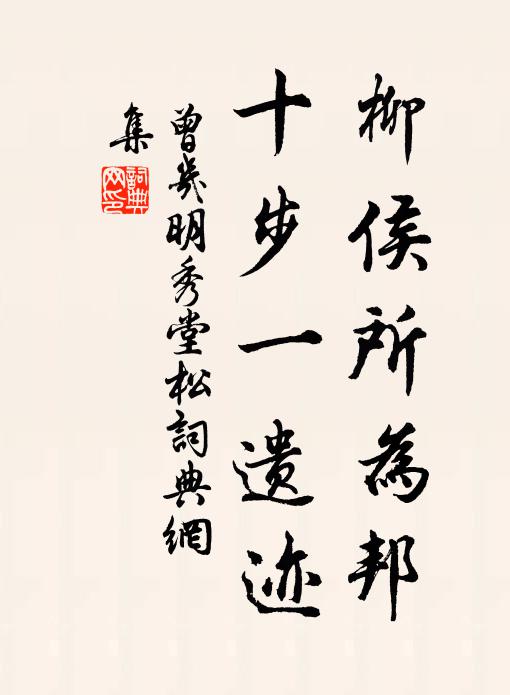 柳侯所為邦
十步一遺迹
曾幾明秀堂松詞典網
集
詞典
网印